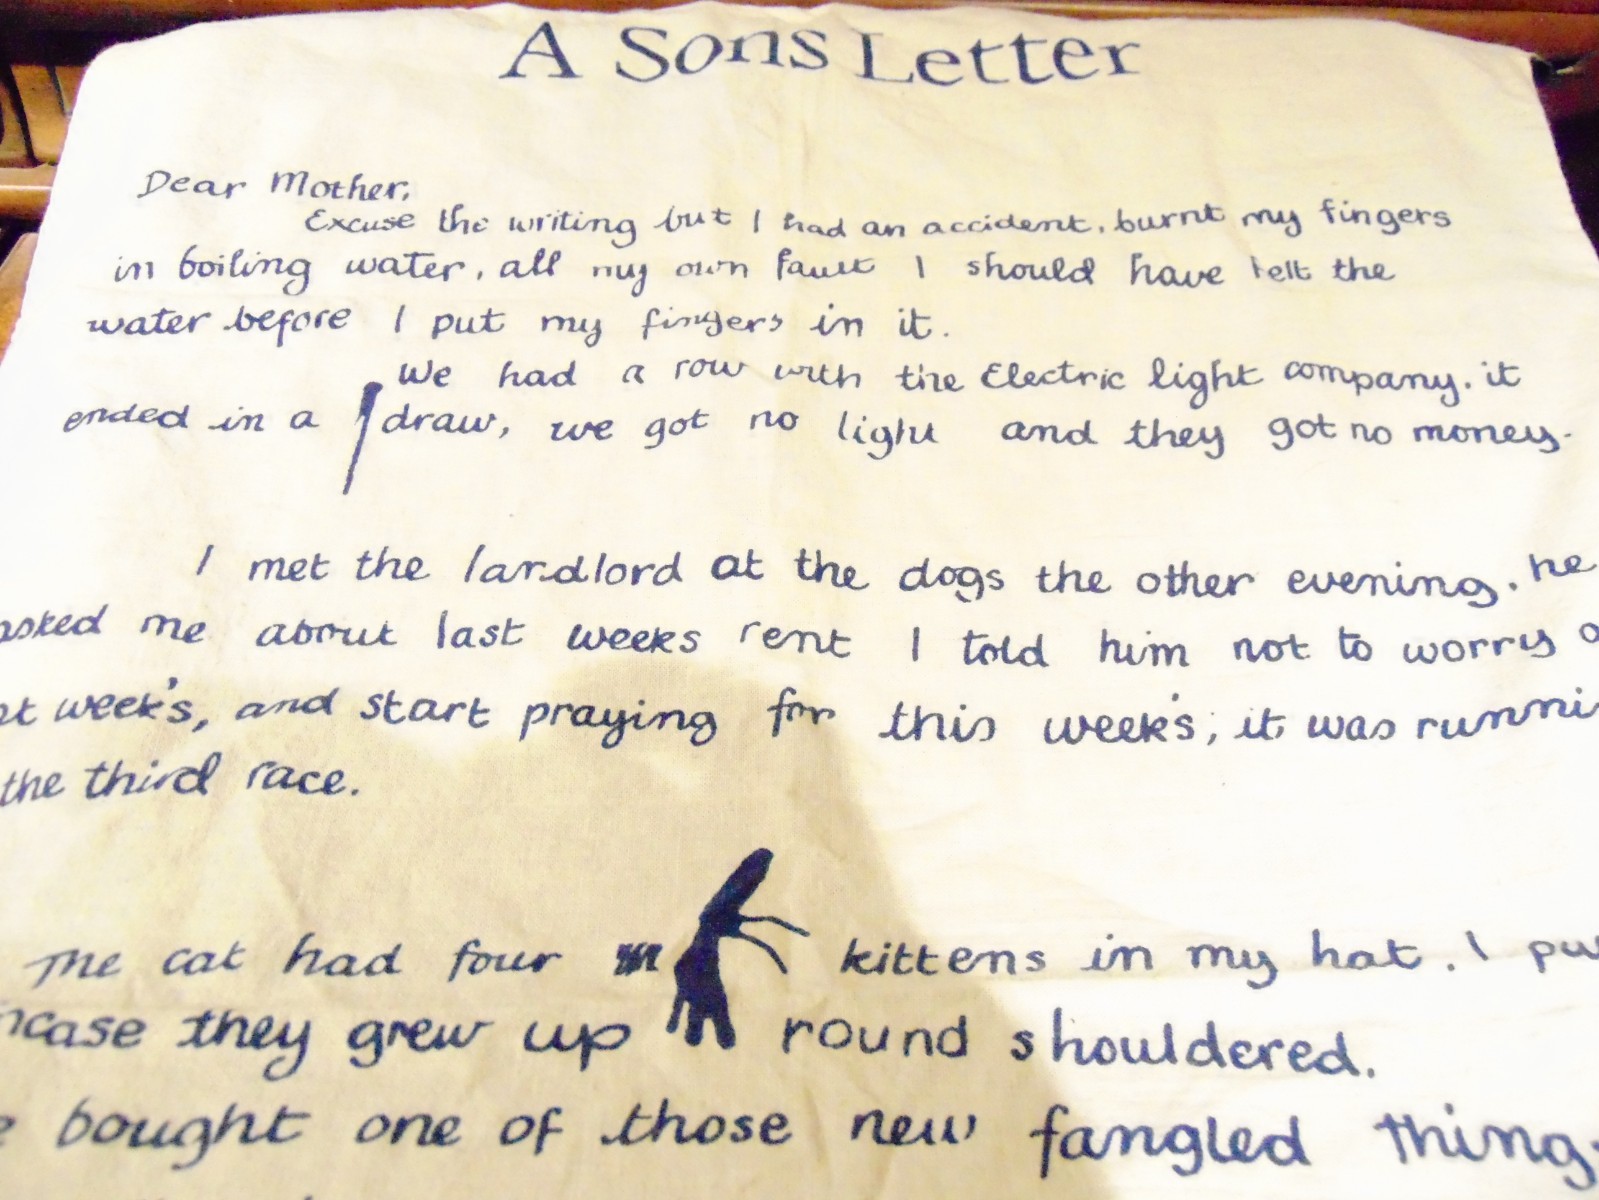 A Sons Letter
Dear Mother,
Excuse the writing but I had an accident, burnt my fingers
in boiling water, all my own fault I should have felt the
water before I put my fingers in it.
We had a row with the Electric light company. it
ended in a draw, we got no light and they got no money.
I met the landlord at the dogs the other evening. he
asked me about last weeks rent I told him not to worry
week's, and start praying for this week's, it was
the third race.
The cat had four kittens in my hat. I
they grew up round shouldered.
bought one of those new fangled